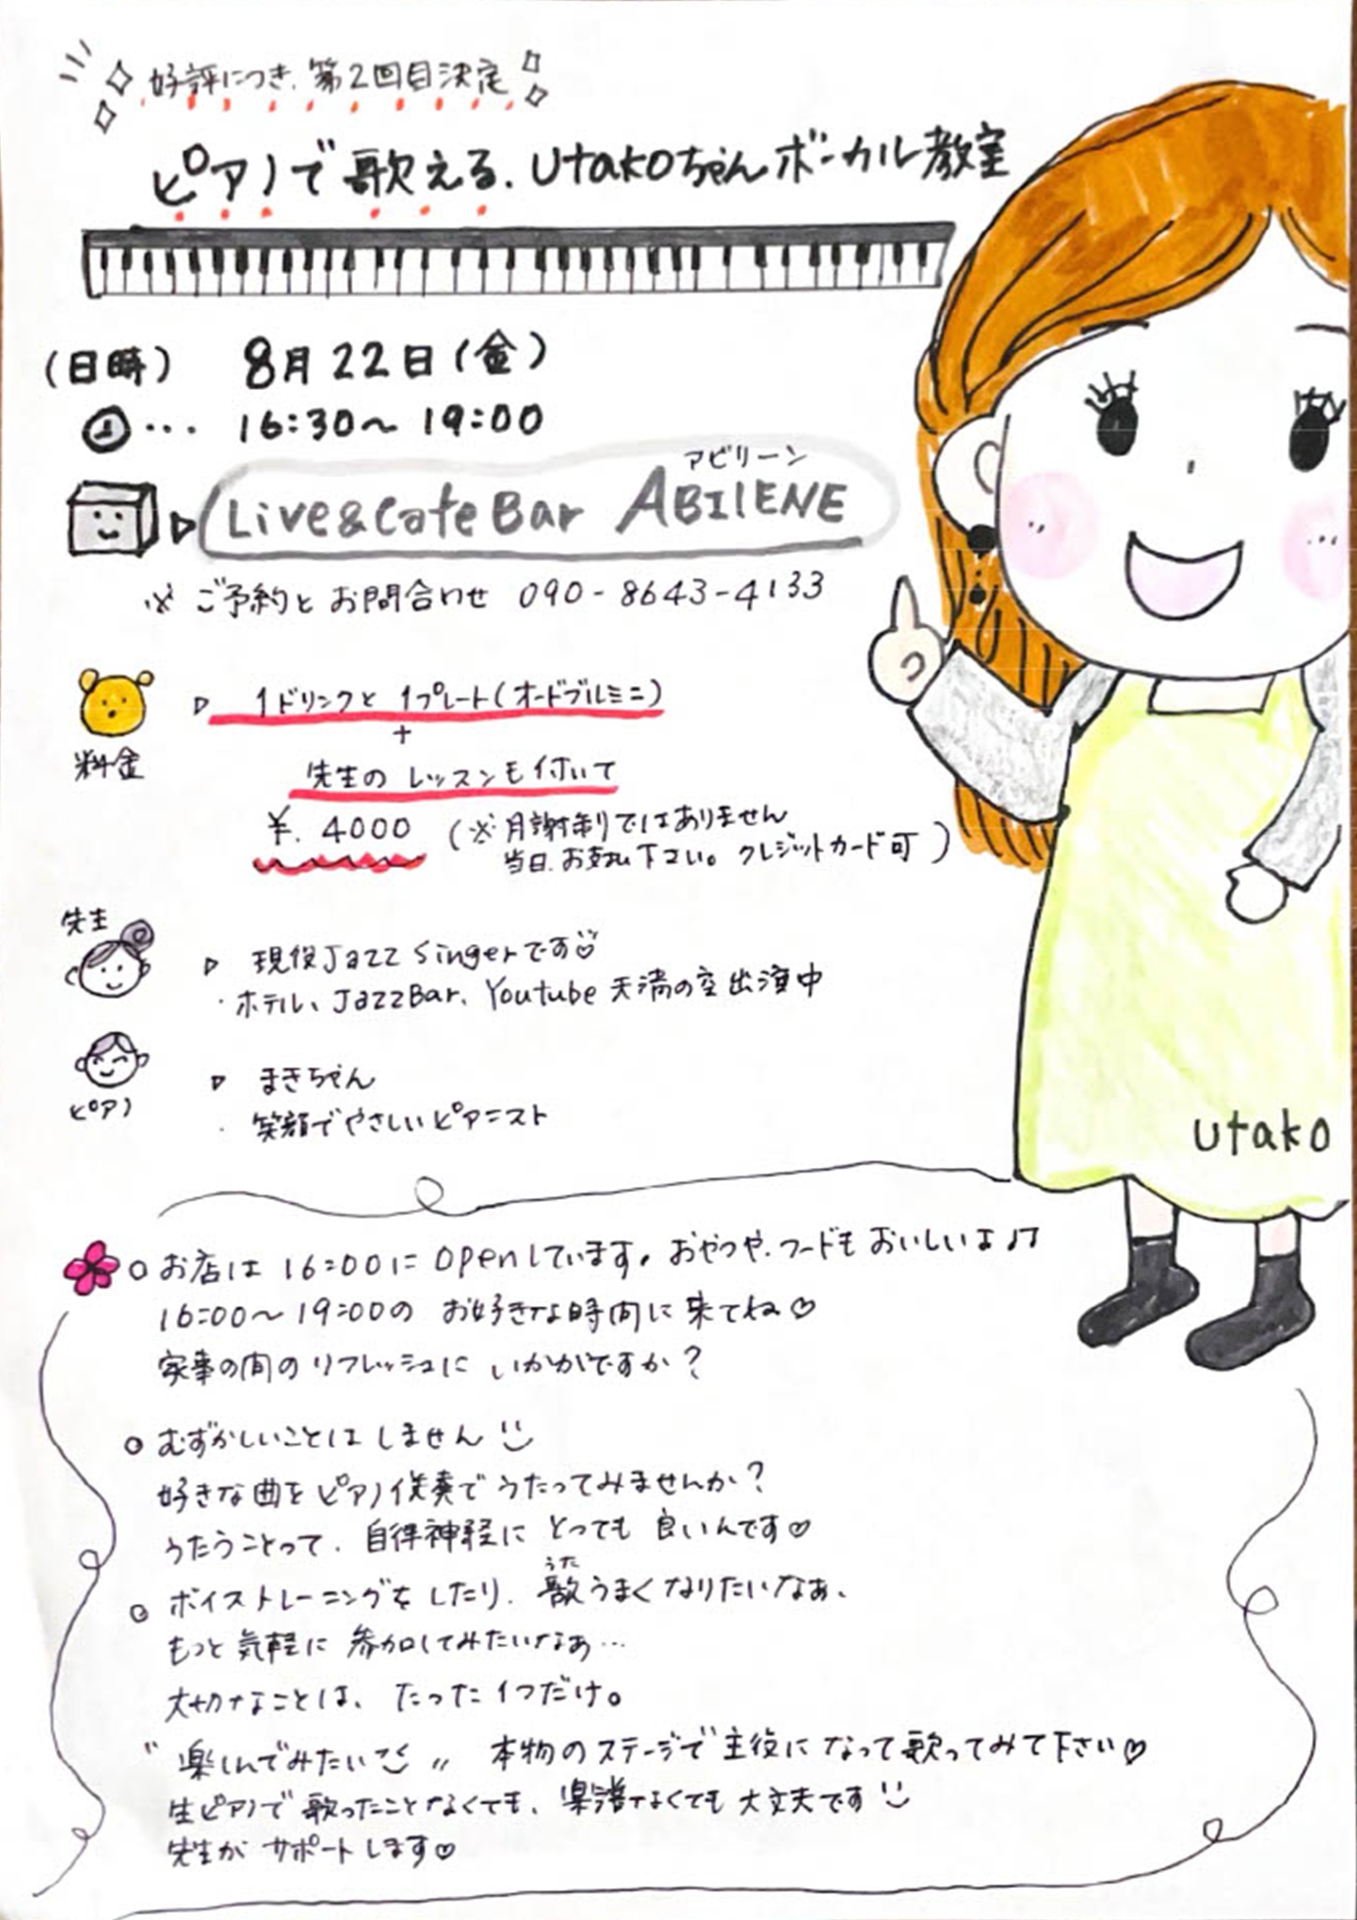 好評につき、第2回目決定
ピアノで歌える、Utakoちゃんボーカル教室
(日時) 8月22日(金)
… 16:30〜19:00
アビリーン
Live&Cafe Bar ABILENE
※ ご予約とお問合わせ 090-8643-4133
料金
1ドリンクと1プレート(オードブルミニ)
+
先生のレッスンも付いて
¥.4000 (※月謝制ではありません
当日、お支払い下さい。クレジットカード可)
先生
現役Jazz Singerです
・ホテル、JazzBar、Youtube 天満の空出演中
ピアノ
まきちゃん
・笑顔でやさしいピアニスト
utako
○お店は16:00にOpenしています。おやつや、フードもおいしいよ♪
16:00〜19:00の お好きな時間に来てね♡
家事の間のリフレッシュに いかがですか?
○むずかしいことは しません
好きな曲をピアノ伴奏でうたってみませんか?
うたうことって、自律神経に とっても 良いんです♡
うた
○ボイストレーニングをしたり、歌うまくなりたいなぁ、
もっと気軽に 参加してみたいなぁ…
大切なことは、たった1つだけ。
〝楽しんでみたい〟 本物のステージで主役になって歌ってみて下さい♡
生ピアノで歌ったことなくても、楽譜なくても大丈夫です
先生が サポートします♡